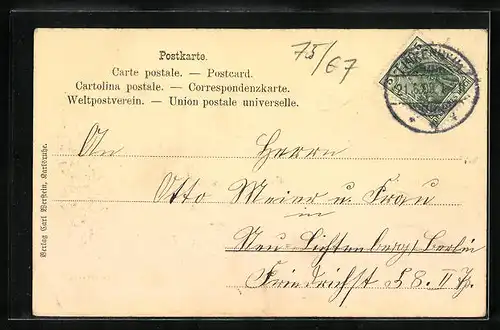 Postkarte.
Carte postale. — Postcard.
Cartolina postale. — Correspondenzkarte.
Weltpostverein. — Union postale universelle.
75/67
Verlag Carl Werstein, Karlsruhe.
An Herrn
Otto Meier u. Frau
in
Neu-Lichtenberg/Berlin
Friedrichst